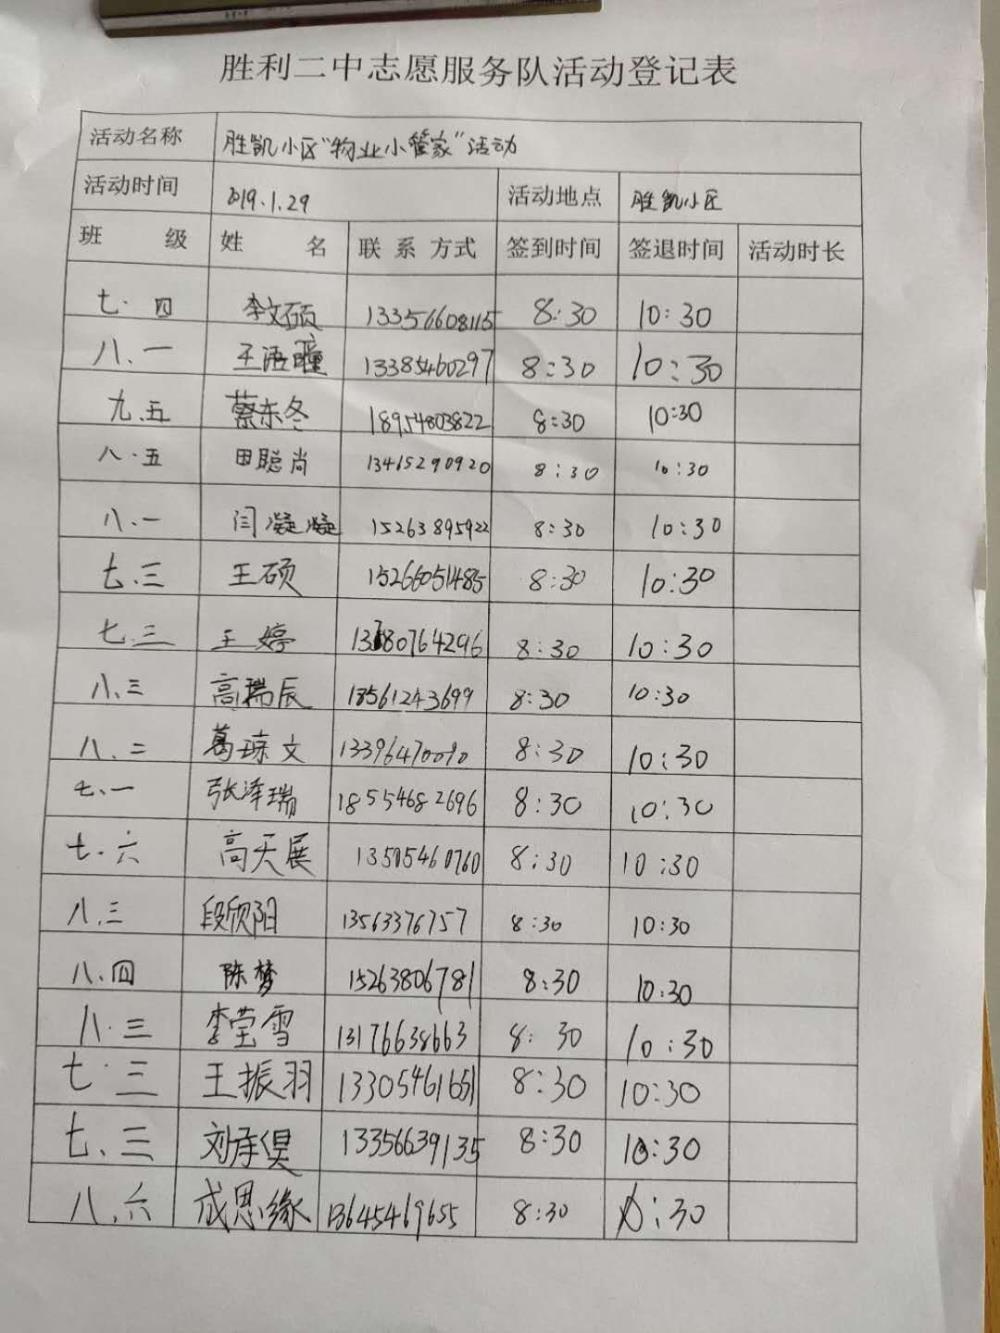 胜利二中志愿服务队活动登记表
活动名称 胜凯小区“物业小管家”活动
活动时间 2019.1.29 活动地点 胜凯小区
班 级 姓 名 联系方式 签到时间 签退时间 活动时长
七.四 李文硕 13356608115 8:30 10:30
八.一 王语瞳 13385460297 8:30 10:30
九.五 蔡东冬 18954803822 8:30 10:30
八.五 田聪尚 13415290920 8:30 10:30
八.一 闫凝凝 15263895922 8:30 10:30
七.三 王硕 15266051485 8:30 10:30
七.三 王婷 8:30 10:30
八.三 高瑞辰 18561243699 8:30 10:30
八.二 葛琼文 13396470090 8:30 10:30
七.一 张泽瑞 18554682696 8:30 10:30
七.六 高天展 13505460760 8:30 10:30
八.三 段欣阳 13563376757 8:30 10:30
八.四 陈梦 15263806781 8:30 10:30
八.三 李莹雪 13176638663 8:30 10:30
七.三 王振羽 13305461651 8:30 10:30
七.三 刘承昊 13356639135 8:30 10:30
八.六 成思缘 13645469655 8:30 10:30